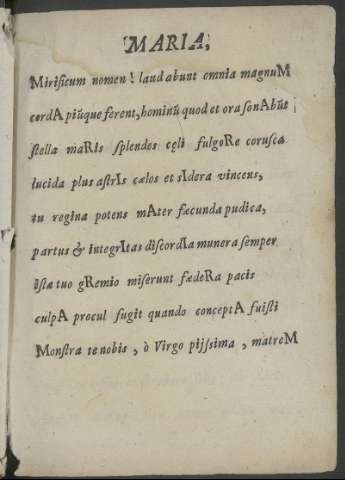 [MARIA,
Mirificum nomen! laudabunt omnia magnuM
cordA piũque ferent, hominũ quod et ora sonAbũt
stella maRis splendes cęli fulgoRe corusca
lucida plus astrIs cælos et sIdera vincens,
tu regina potens mAter fæcunda pudica,
partus & integrItas discordIa munera semper
ista tuo gRemio miserunt fædeRa pacis
culpA procul fugit quando conceptA fuisti
Monstra te nobis, ò Virgo pijssima, matreM